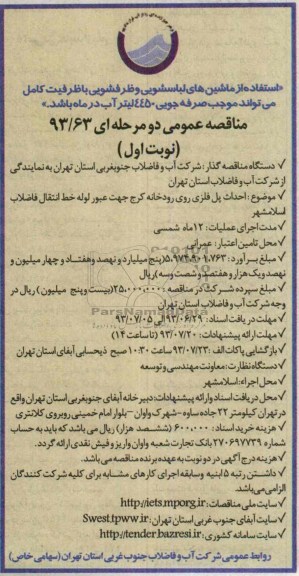 «استفاده از ماشین های لباسشویی وظرفشویی باظرفیت کامل
می تواند موجب صرفه جویی ۴۴۵۰ لیتر آب در ماه باشد.»
مناقصه عمومی دو مرحله ای ۹۳/۶۳
(نوبت اول)
✓ دستگاه مناقصه گذار: شرکت آب و فاضلاب جنوبغربی استان تهران به نمایندگی
از شرکت آب و فاضلاب استان تهران
✓ موضوع: احداث پل فلزی روی رودخانه کرج جهت عبور لوله خط انتقال فاضلاب
اسلامشهر
✓ مدت اجرای عملیات: ۱۲ماه شمسی
✓ محل تامین اعتبار: عمرانی
✓ مبلغ برآورد: ۵،۹۷۴،۹۰۱،۷۶۳(پنج میلیارد و نهصد وهفتاد و چهار میلیون و
نهصد ویک هزار و هفتصد و شصت وسه) ریال
✓ مبلغ سپرده شرکت در مناقصه: ۲۵،۰۰۰،۰۰۰(بیست وپنج میلیون) ریال در
وجه شرکت آب و فاضلاب استان تهران
✓ مهلت دریافت اسناد: ۹۳/۰۶/۲۹ الی ۹۳/۰۷/۰۵
✓ مهلت ارائه پیشنهادات: ۹۳/۰۷/۲۰ (تا ساعت ۱۴)
✓ بازگشایی پاکات الف: ۹۳/۰۷/۲۳ ساعت ۱۰:۳۰ صبح ذیحسابی آبفای استان تهران
✓ دستگاه نظارت: معاونت مهندسی و توسعه
✓ محل اجراء: اسلامشهر
✓ محل دریافت اسناد و ارائه پیشنهادات: دبیرخانه آبفای جنوبغربی استان تهران واقع
در تهران کیلومتر ۲۲ جاده ساوه-شهرک واوان-بلوار امام خمینی روبروی کلانتری
✓ هزینه خرید اسناد: ۶۰۰،۰۰۰ (ششصد هزار) ریال می باشد که باید به حساب
شماره ۲۷۰۶۹۷۷۳۹ بانک تجارت شعبه واوان واریز و فیش نقدی ارائه گردد.
✓ هزینه درج آگهی در دو نوبت به عهده برنده مناقصه می باشد.
✓ داشتن رتبه ۵ ابنیه وسابقه اجرای کارهای مشابه برای کلیه شرکت کنندگان
الزامی می باشد.
✓ سایت ملی مناقصات: http://iets.mporg.ir
✓ سایت آبفای جنوب غربی استان تهران: Swest.tpww.ir
✓ سایت سامانه کشوری: http://tender.bazresi.ir
روابط عمومی شرکت آب و فاضلاب جنوب غربی استان تهران (سهامی خاص)